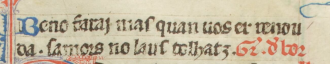 Beno farai mas quan uos er renou
da. samors no laus tolhatz. Gr. d'bor